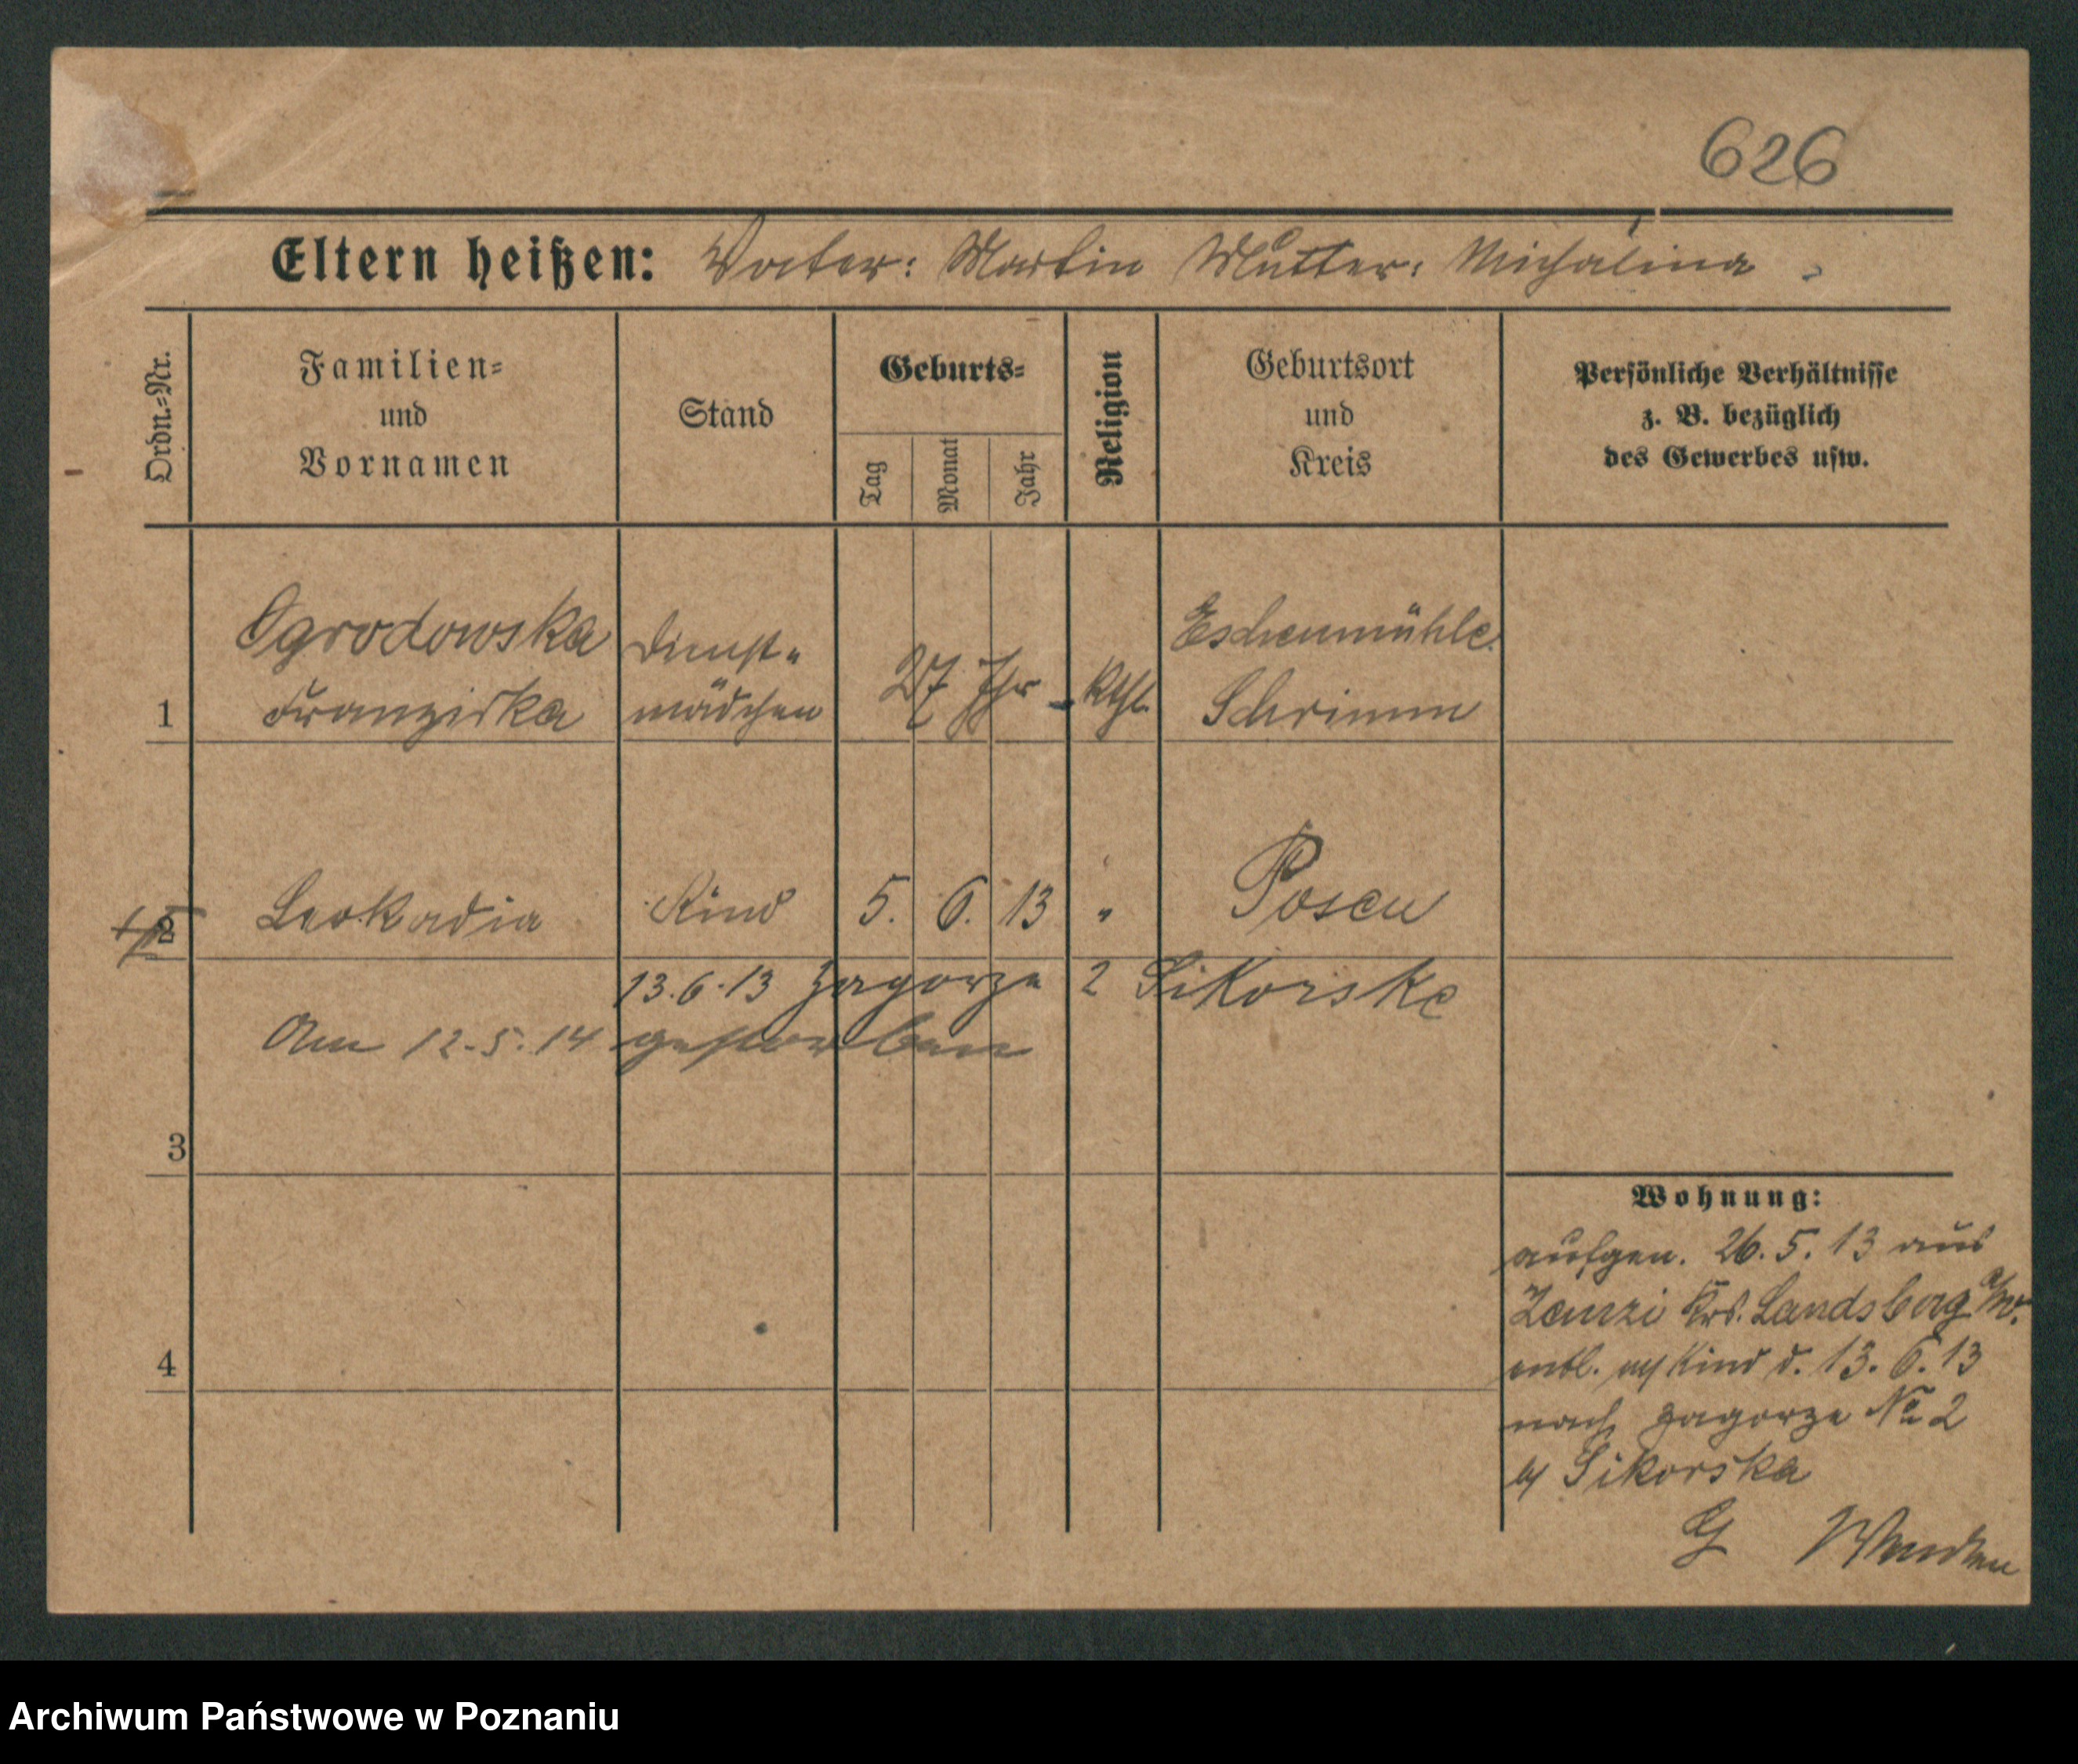 626
Eltern heißen: Vater: Martin Mutter: Michalina
Ordn.-Nr.
Familien-
und
Vornamen
Stand
Geburts-
Tag
Monat
Jahr
Religion
Geburtsort
und
Kreis
Persönliche Verhältnisse
z. B. bezüglich
des Gewerbes usw.
1
Ogrodowska
Franziska
Dienst-
mädchen
27 Jhr
Kthl.
Eschenmühle
Schrimm
2
Leokadia
Kind
5. 6. 13
"
Posen
13.6.13 Zagorze 2 Sikorske
Am 12.5.14 gestorben
3
4
Wohnung:
aufgen. 26.5.13 aus
Krs. Landsberg a/W.
entl. Kind d. 13.6.13
nach Zagorze No 2
Sikorska
Archiwum Państwowe w Poznaniu